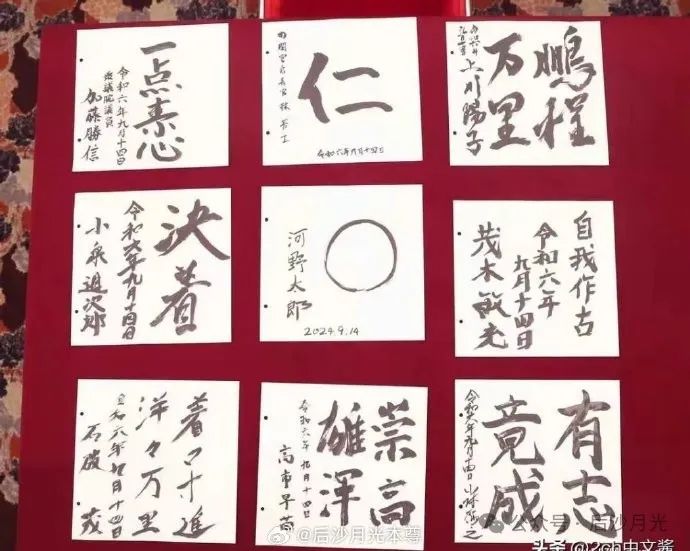 一点素心
令和六年九月十四日
衆議院議員
加藤勝信
仁
内閣官房長官 林芳正
令和六年九月十四日
鵬程
万里
令和六年
九月十四日
上川陽子
決着
令和六年九月十四日
小泉進次郎
河野太郎
2024.9.14
自我作古
令和六年
九月十四日
茂木敏充
着々寸進
洋々万里
令和六年九月十四日
石破 茂
崇高
雄渾
令和六年九月十四日
高市早苗
有志
竟成
令和六年九月十四日 小林鷹之
@后沙月光本尊
公众号·后沙月光
头条 @2ch中文酱